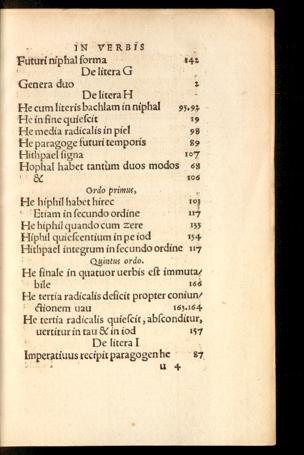 IN VERBIS
Futuri niphal forma 142
De litera G
Genera duo 2
De litera H
He cum literis bachlam in niphal 95,92
He in fine quiescit 19
He media radicalis in piel 98
He paragoge futuri temporis 89
Hithpael signa 107
Hophal habet tantùm duos modos 68
& 106
Ordo primus,
He hiphil habet hirec 103
Etiam in secundo ordine 117
He hiphil quando cum zere 135
Hiphil quiescentium in pe iod 134
Hithpael integrum in secundo ordine 117
Quintus ordo.
He finale in quatuor uerbis est immuta/
bile 166
He tertia radicalis deficit propter coniun/
ctionem uau 163.164
He tertia radicalis quiescit, absconditur,
uertitur in tau & in iod 157
De litera I
Imperatiuus recipit paragogen he 87
u 4